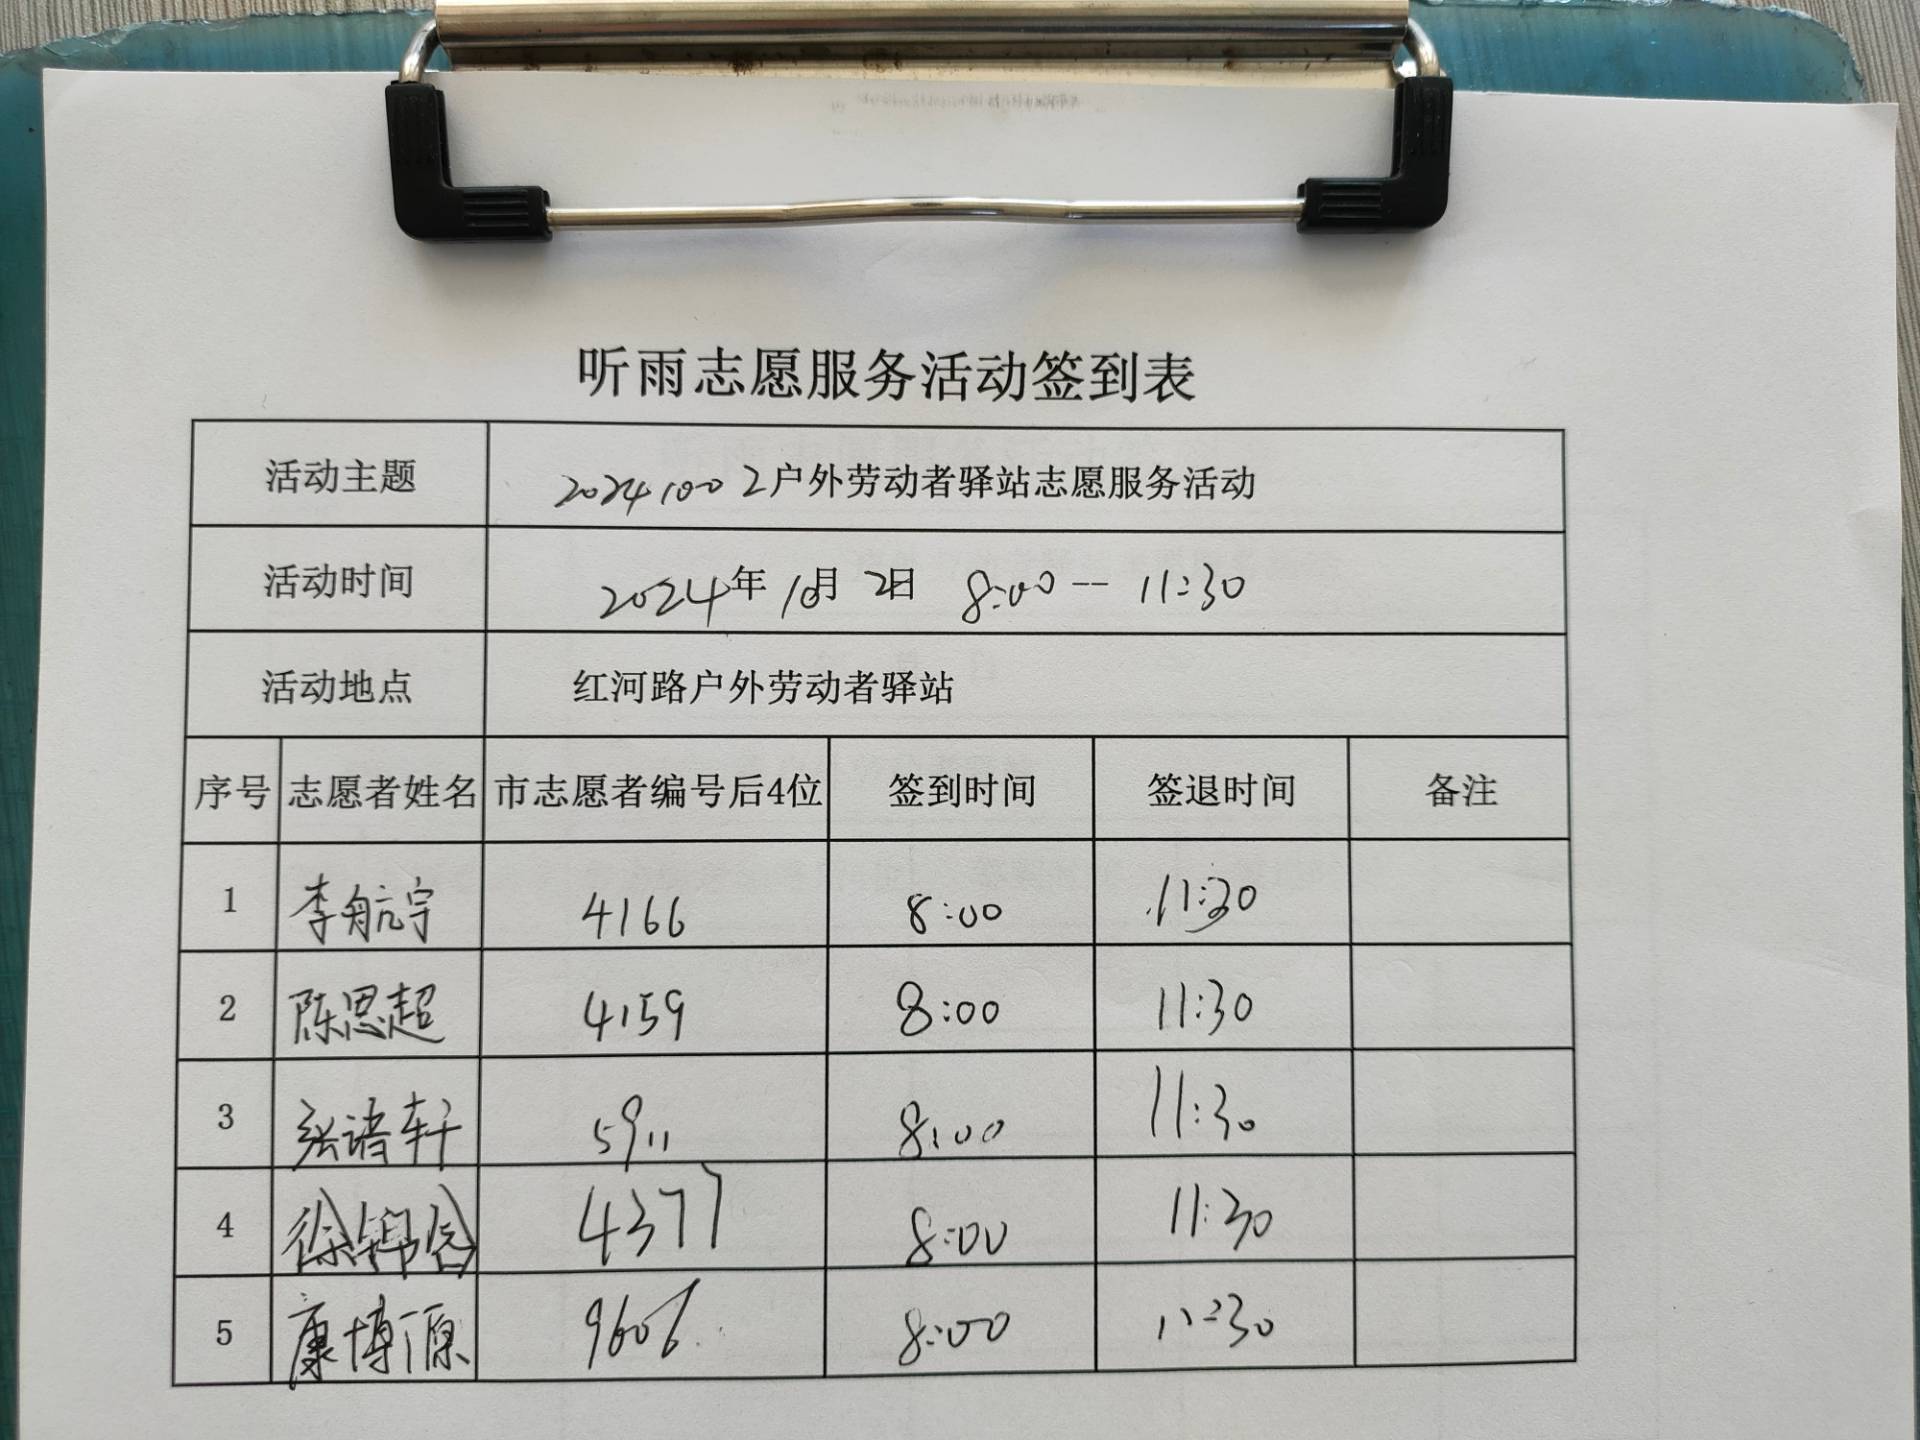 听雨志愿服务活动签到表
活动主题 20241002户外劳动者驿站志愿服务活动
活动时间 2024年10月2日 8:00--11:30
活动地点 红河路户外劳动者驿站
序号 志愿者姓名 市志愿者编号后4位 签到时间 签退时间 备注
1 李航宇 4166 8:00 11:30
2 陈思超 4159 8:00 11:30
3 张诸轩 5911 8:00 11:30
4 徐锦 4377 8:00 11:30
5 康博源 9606 8:00 11:30